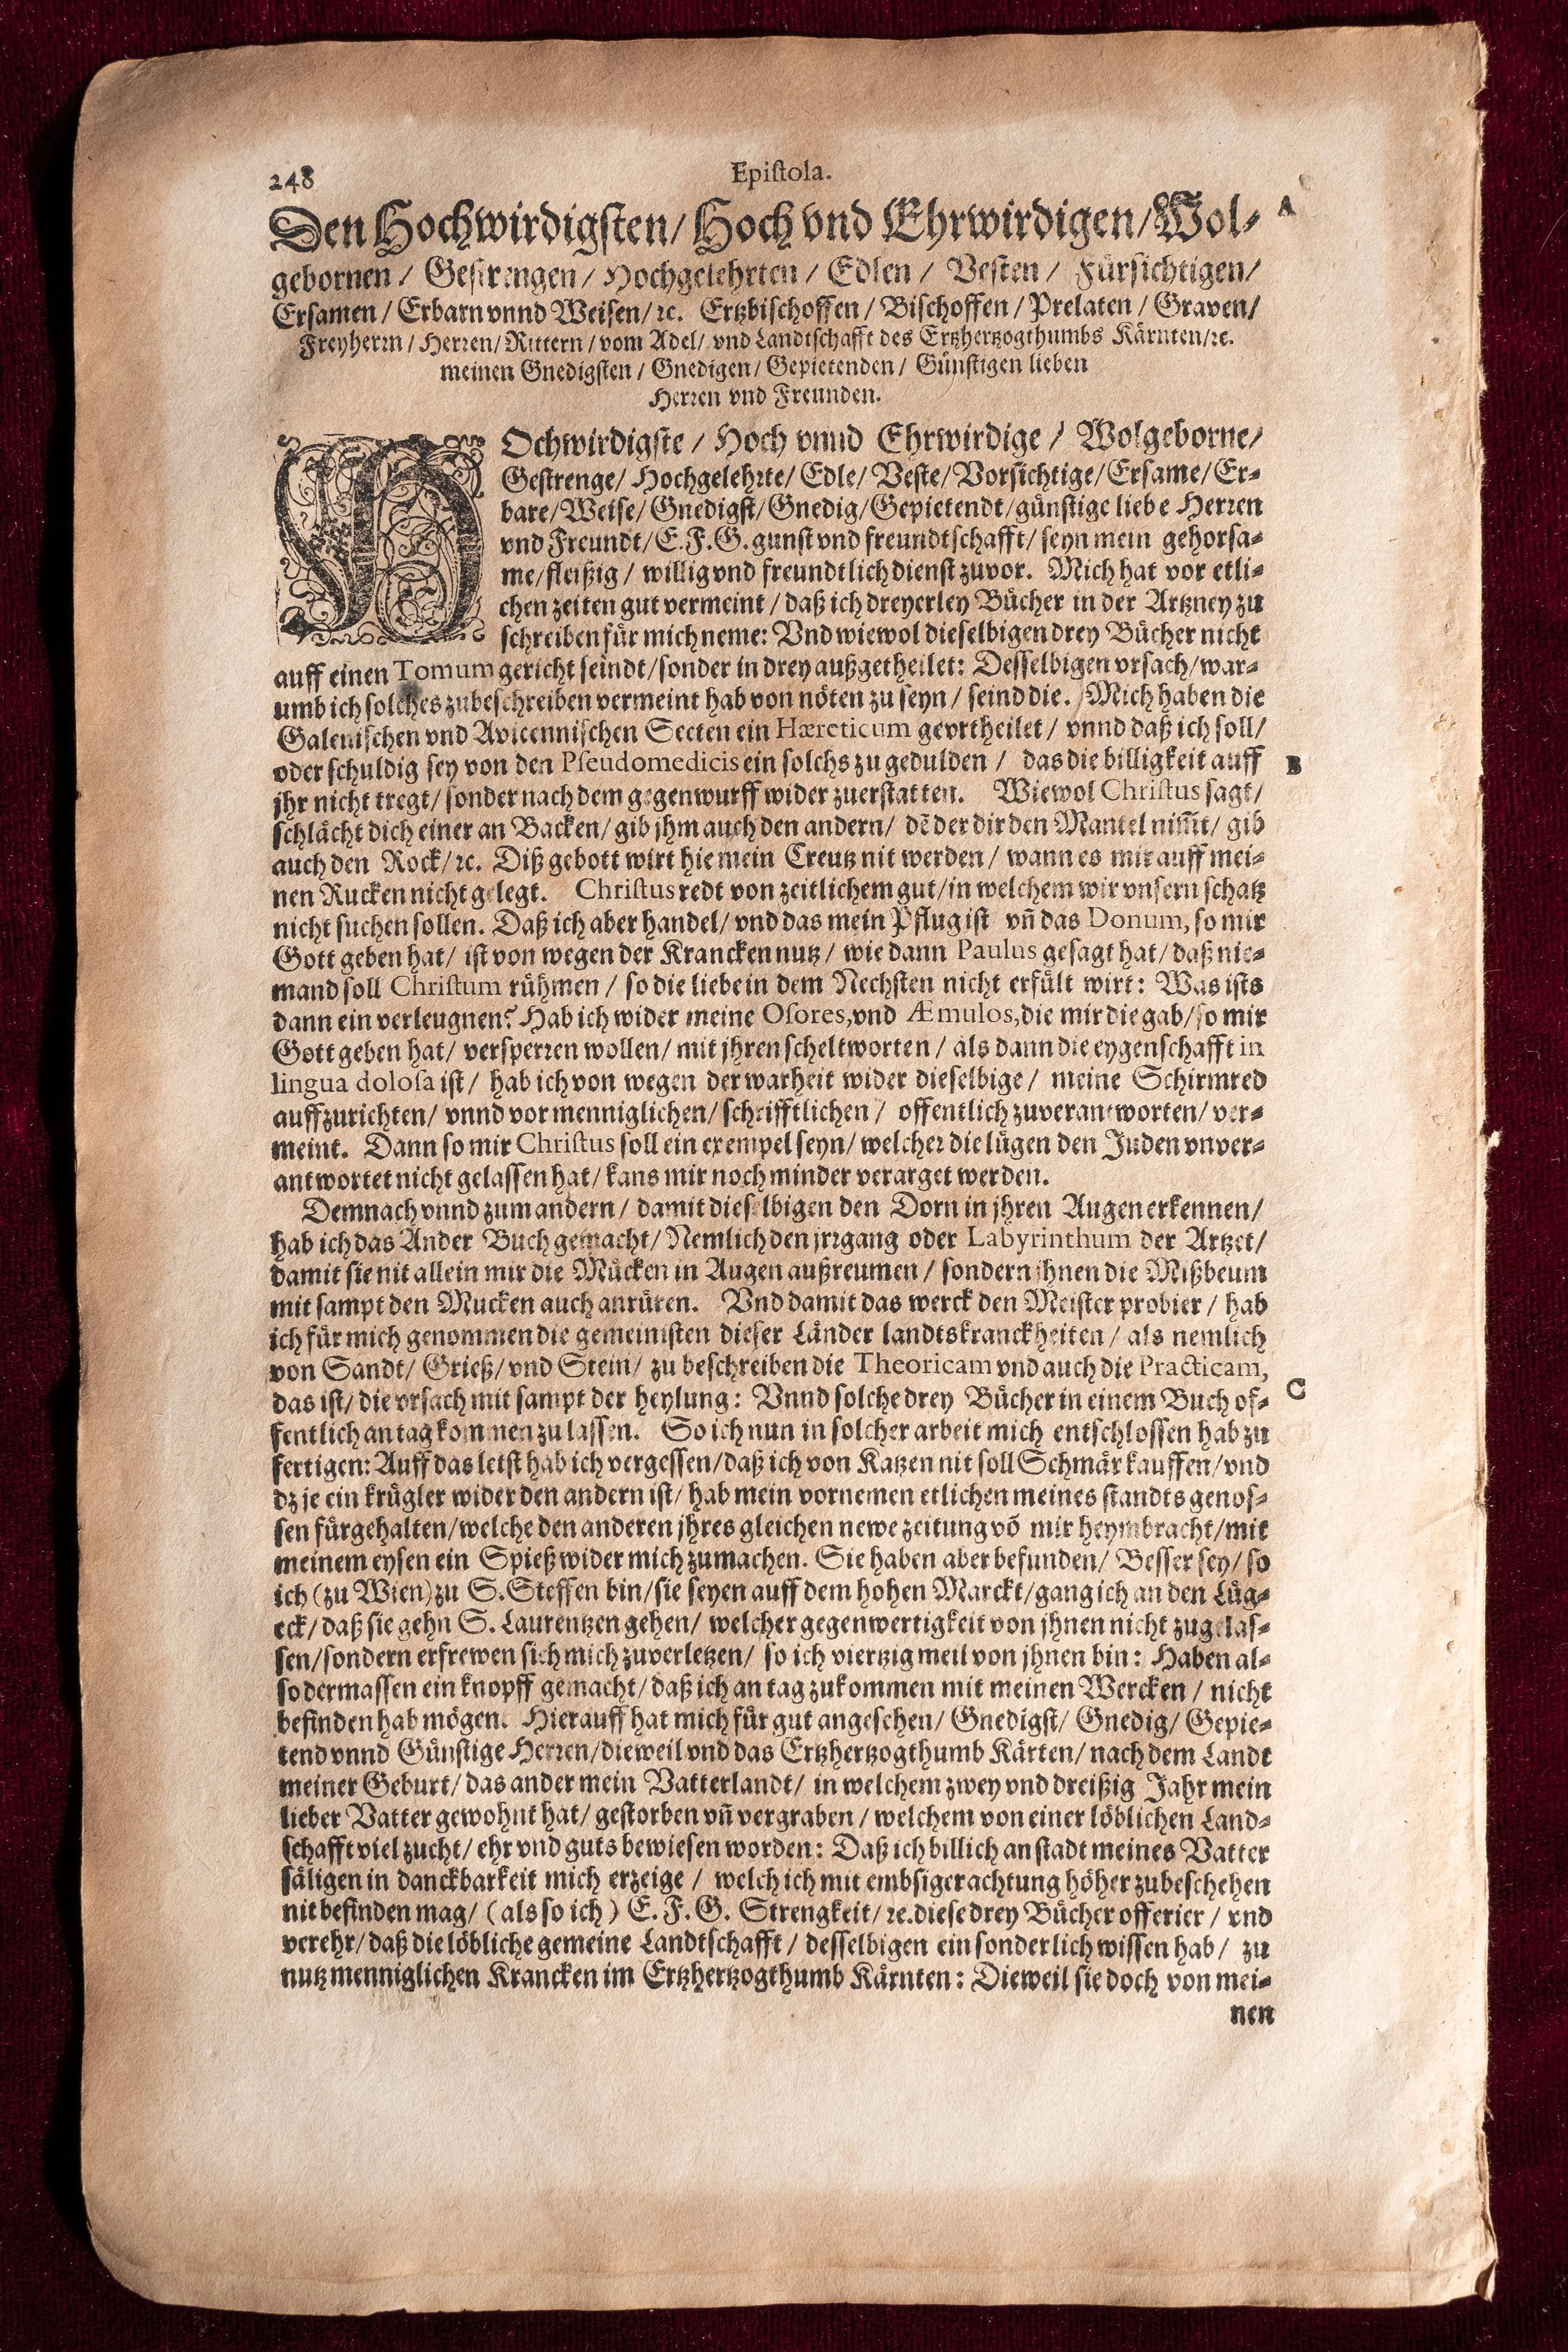 248 Epistola.
Den Hochwirdigsten/ Hoch vnd Ehrwirdigen/ Wol- A
gebornen / Gestrengen / Hochgelehrten / Edlen / Vesten / Fürsichtigen/
Ersamen / Erbarn vnnd Weisen/ ꝛc. Ertzbischoffen / Bischoffen / Prelaten / Graven/
Freyherrn / Herren/ Rittern / vom Adel/ vnd Landtschafft des Ertzhertzogthumbs Kärnten/ꝛc.
meinen Gnedigsten / Gnedigen / Gepietenden / Günstigen lieben
Herren vnd Freunden.
HOchwirdigste / Hoch vnnd Ehrwirdige / Wolgeborne/
Gestrenge/ Hochgelehrte/ Edle/ Veste/ Vorsichtige/ Ersame/ Er-
bare/ Weise/ Gnedigst/ Gnedig/ Gepietendt/ günstige liebe Herren
vnd Freundt/ E. F. G. gunst vnd freundtschafft/ seyn mein gehorsa-
me/ fleißig / willig vnd freundtlich dienst zuvor. Mich hat vor etli-
chen zeiten gut vermeint / daß ich dreyerley Bücher in der Artzney zu
schreiben für mich neme: Vnd wiewol dieselbigen drey Bücher nicht
auff einen Tomum gericht seindt/ sonder in drey außgetheilet: Desselbigen vrsach/ war-
umb ich solches zubeschreiben vermeint hab von nöten zu seyn / seind die. Mich haben die
Galenischen vnd Avicennischen Secten ein Hæreticum gevrtheilet / vnnd daß ich soll/
oder schuldig sey von den Pseudomedicis ein solchs zu gedulden / das die billigkeit auff B
jhr nicht tregt/ sonder nach dem gegenwurff wider zuerstatten. Wiewol Christus sagt/
schlächt dich einer an Backen/ gib jhm auch den andern/ dē der dir den Mantel nim̄t/ gib
auch den Rock/ ꝛc. Diß gebott wirt hie mein Creutz nit werden / wann es mir auff mei-
nen Rucken nicht gelegt. Christus redt von zeitlichem gut/ in welchem wir vnsern schatz
nicht suchen sollen. Daß ich aber handel/ vnd das mein Pflug ist vn̄ das Donum, so mir
Gott geben hat/ ist von wegen der Krancken nutz / wie dann Paulus gesagt hat/ daß nie-
mand soll Christum rühmen / so die liebe in dem Nechsten nicht erfült wirt: Was ists
dann ein verleugnen? Hab ich wider meine Osores, vnd Æmulos, die mir die gab/ so mir
Gott geben hat/ versperren wollen/ mit jhren scheltworten / als dann die eygenschafft in
lingua dolosa ist / hab ich von wegen der warheit wider dieselbige / meine Schirmred
auffzurichten/ vnnd vor menniglichen/ schrifftlichen / offentlich zuverantworten/ ver-
meint. Dann so mir Christus soll ein exempel seyn/ welcher die lügen den Juden vnver-
antwortet nicht gelassen hat/ kans mir noch minder verarget werden.
Demnach vnnd zum andern / damit dieselbigen den Dorn in jhren Augen erkennen/
hab ich das Ander Buch gemacht/ Nemlich den jrrgang oder Labyrinthum der Artzet/
damit sie nit allein mir die Mücken in Augen außreumen / sondern jhnen die Mißbeum
mit sampt den Mucken auch anrüren. Vnd damit das werck den Meister probier / hab
ich für mich genommen die gemeinisten dieser Länder landtskranckheiten / als nemlich
von Sandt/ Grieß/ vnd Stein/ zu beschreiben die Theoricam vnd auch die Practicam,
das ist/ die vrsach mit sampt der heylung: Vnnd solche drey Bücher in einem Buch of- C
fentlich an tag kommen zu lassen. So ich nun in solcher arbeit mich entschlossen hab zu
fertigen: Auff das letst hab ich vergessen/ daß ich von Katzen nit soll Schmär kauffen/ vnd
dz je ein krügler wider den andern ist/ hab mein vornemen etlichen meines standts genos-
sen fürgehalten/ welche den anderen jhres gleichen newe zeitung vō mir heymbracht/ mit
meinem eysen ein Spieß wider mich zumachen. Sie haben aber befunden/ Besser sey/ so
ich (zu Wien) zu S. Steffen bin/ sie seyen auff dem hohen Marckt/ gang ich an den Lüg-
eck/ daß sie gehn S. Laurentzen gehen/ welcher gegenwertigkeit von jhnen nicht zugelas-
sen/ sondern erfrewen sich mich zuverletzen/ so ich viertzig meil von jhnen bin: Haben al-
so dermassen ein knopff gemacht/ daß ich an tag zukommen mit meinen Wercken / nicht
befinden hab mögen. Hierauff hat mich für gut angesehen/ Gnedigst/ Gnedig/ Gepie-
tend vnnd Günstige Herren/ dieweil vnd das Ertzhertzogthumb Kärten/ nach dem Landt
meiner Geburt/ das ander mein Vatterlandt/ in welchem zwey vnd dreißig Jahr mein
lieber Vatter gewohnt hat/ gestorben vn̄ vergraben / welchem von einer löblichen Land-
schafft viel zucht/ ehr vnd guts bewiesen worden: Daß ich billich an stadt meines Vatter
säligen in danckbarkeit mich erzeige / welch ich mit embsiger achtung höher zubeschehen
nit befinden mag/ (als so ich) E. F. G. Strengkeit/ ꝛc. diese drey Bücher offerier / vnd
verehr/ daß die löbliche gemeine Landtschafft / desselbigen ein sonderlich wissen hab / zu
nutz menniglichen Krancken im Ertzhertzogthumb Kärnten: Dieweil sie doch von mei-
nen